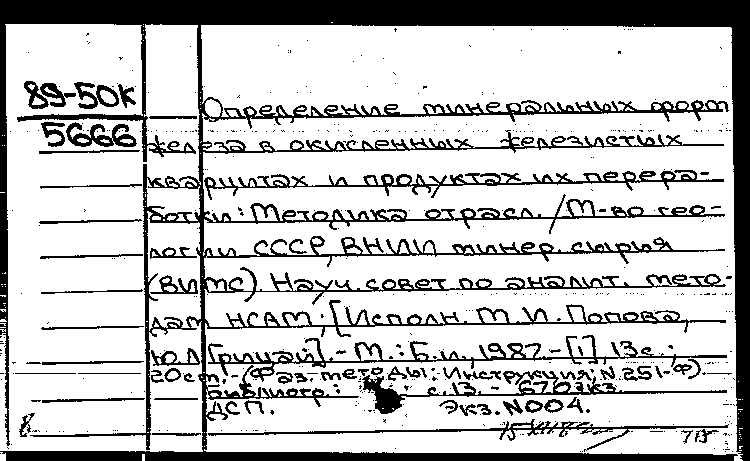 89-50к
5666
Определение минеральных форм
железа в окисленных железистых
кварцитах и продуктах их перера-
ботки: Методика отрасл. / М-во гео-
логии СССР, ВНИИ минер. сырья
(ВИМС) Науч. совет по аналит. мето-
дам НСАМ; [Исполн. М.И. Попова,
Ю.Л. Грицай]. - М.: Б.и., 1987. - [1], 13 с.;
20 см. - (Фаз. методы: Инструкция; N 251-Ф).
Библиогр.: с. 13. - 670 экз.
ДСП. Экз. N004.
8
715